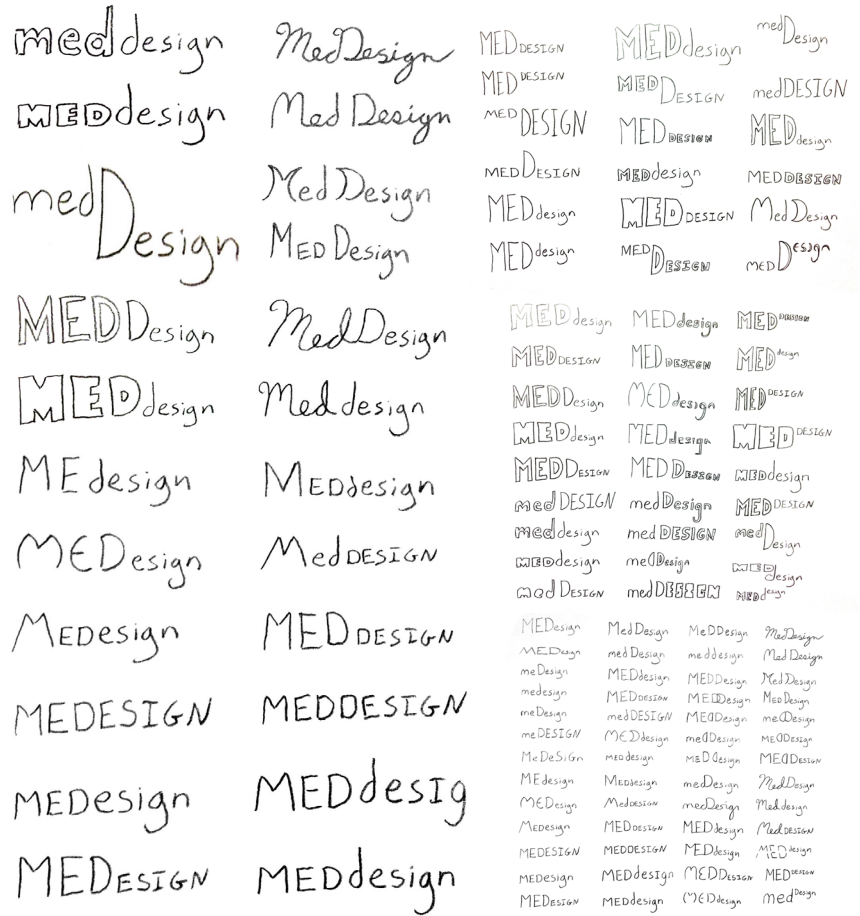 meddesign
MEDdesign
medDesign
MEDDesign
MEDdesign
MEdesign
MEDesign
MEDesign
MEDESIGN
MEDesign
MEDESIGN
MedDesign
Med Design
Med Design
MED Design
MedDesign
Med design
MEDdesign
MedDESIGN
MED DESIGN
MEDDESIGN
MEDdesig
MEDdesign
MED DESIGN
MED DESIGN
MED DESIGN
MED DESIGN
MED design
MED design
MEDdesign
MED DESIGN
MED DESIGN
MEDdesign
MED DESIGN
MED DESIGN
med Design
medDESIGN
MED design
MEDDESIGN
Med Design
MED Design
MED design
MED DESIGN
MEDDesign
MEDdesign
MEDDESIGN
med DESIGN
meddesign
MEDdesign
med DESIGN
MEDdesign
MED DESIGN
MEDdesign
MEDdesign
MED DESIGN
medDesign
med DESIGN
medDesign
medDESIGN
MED DESIGN
MED design
MED DESIGN
MED DESIGN
MEDdesign
MED DESIGN
med Design
MED design
MED design
MEDesign
MEDesign
meDesign
medesign
meDesign
meDESIGN
MeDeSiGn
MEdesign
MEDesign
MEDesign
MEDESIGN
MEDesign
MEDESIGN
MedDesign
med Design
MEDdesign
MEDDESIGN
medDESIGN
MEDdesign
MED design
MEDdesign
MedDESIGN
MED DESIGN
MEDDESIGN
MEDdesign
MEDdesign
MeDDesign
med design
MEDDesign
MEDDesign
MEDDesign
medDesign
MEDDesign
medDesign
medDesign
MEDdesign
MEDdesign
MEDDESIGN
MEDdesign
MedDesign
Med Design
Med Design
MED Design
medDesign
MEDDesign
MEDDESIGN
MedDesign
Med design
Med DESIGN
MED design
MED DESIGN
med Design